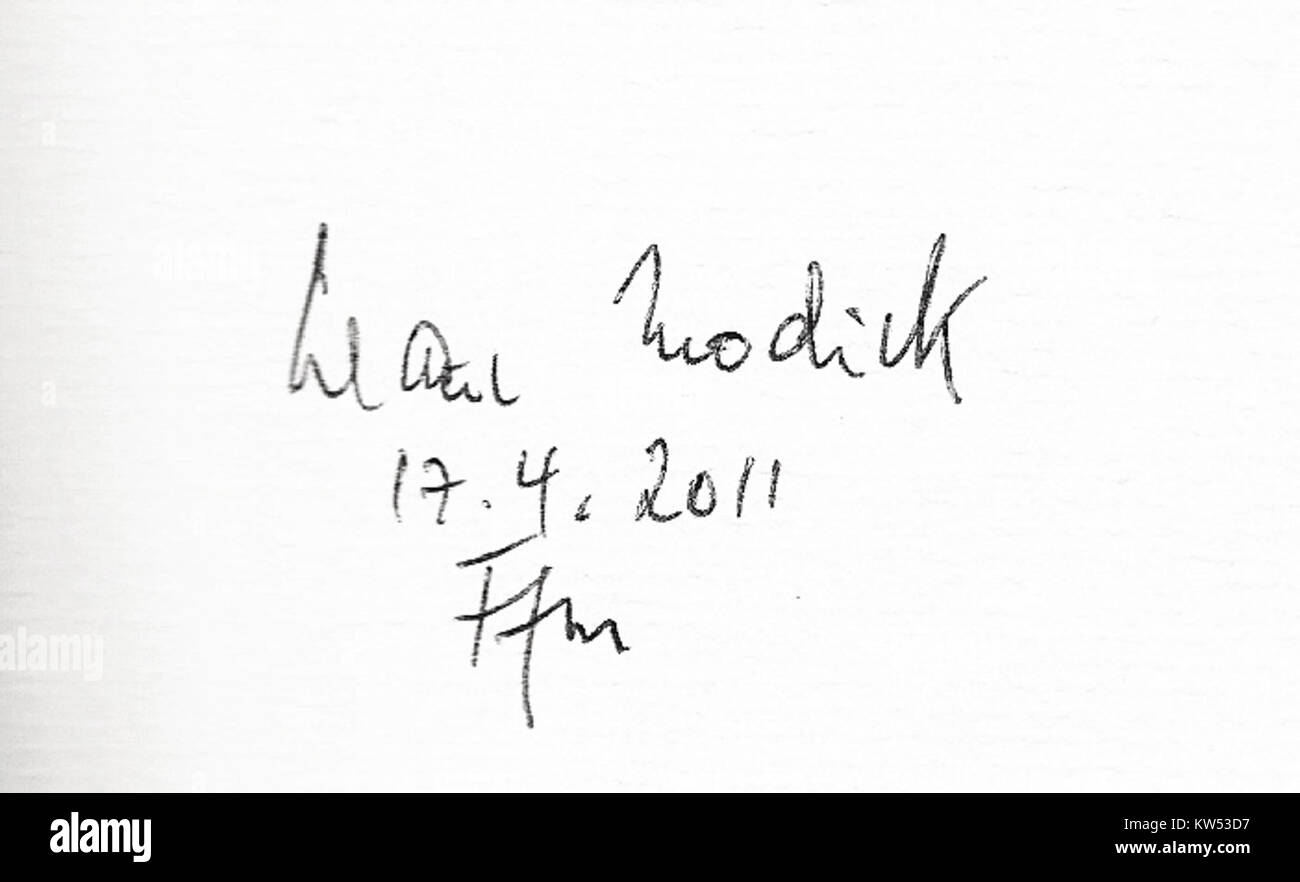 Klaus Modick
17.4.2011
Ffm
alamy
alamy
Image ID: KW53D7
www.alamy.com